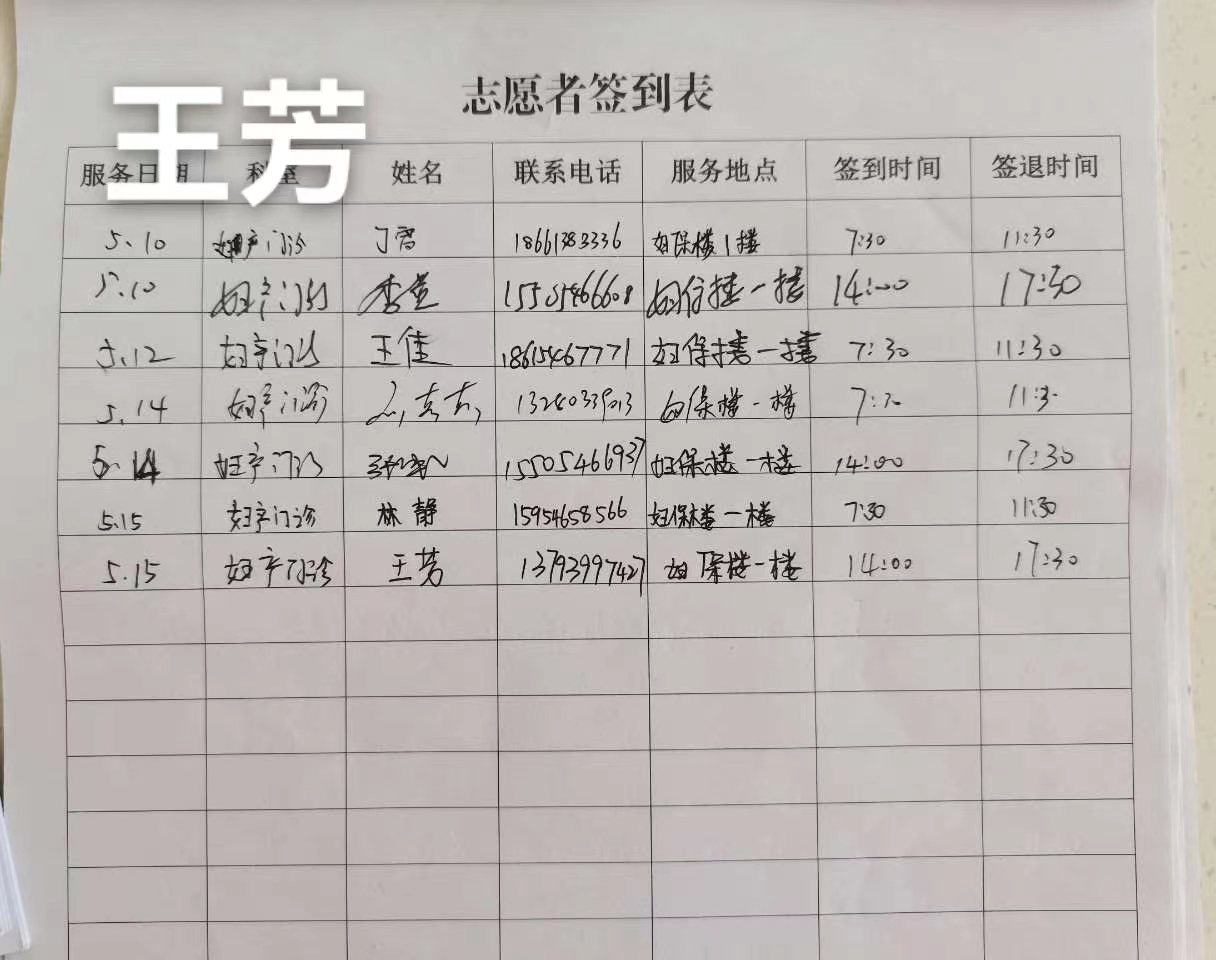 王芳
志愿者签到表
服务日期 科室 姓名 联系电话 服务地点 签到时间 签退时间
5.10 妇产门诊 丁 18661383336 妇保楼1楼 7:30 11:30
5.10 妇产门诊 李 15505466608 妇保楼一楼 14:00 17:30
5.12 妇产门诊 王佳 18615467771 妇保楼一楼 7:30 11:30
5.14 妇产门诊 妇保楼一楼
5.14 妇产门诊 15505466937 妇保楼一楼 14:00 17:30
5.15 妇产门诊 林静 15954658566 妇保楼一楼 7:30 11:30
5.15 妇产门诊 王芳 13793997427 妇保楼一楼 14:00 17:30